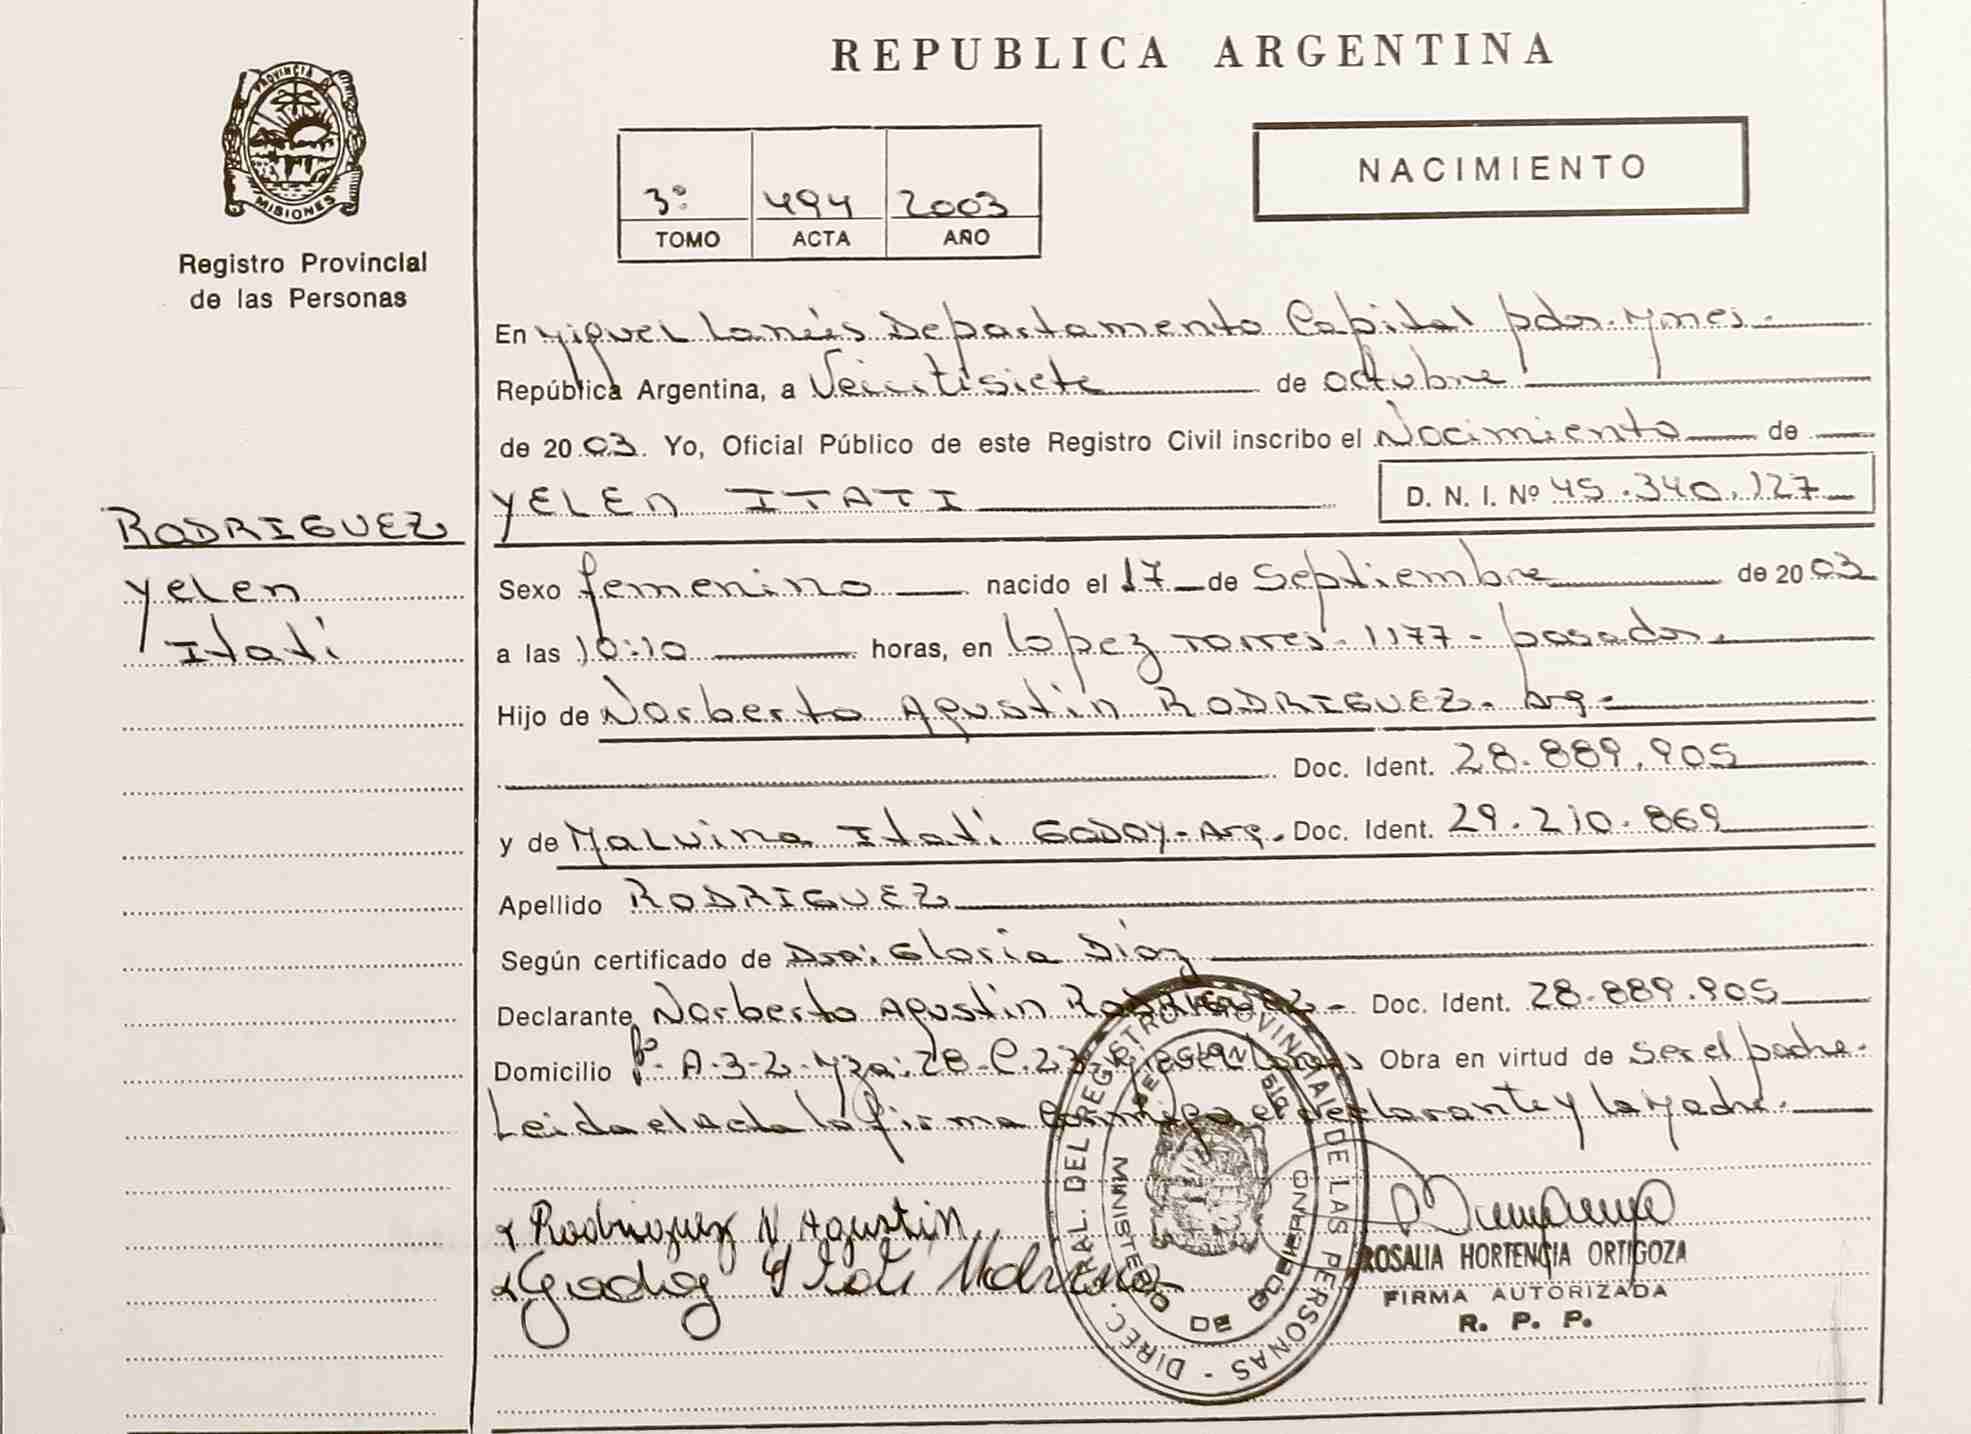 REPUBLICA ARGENTINA
PROVINCIA DE
MISIONES
Registro Provincial
de las Personas
NACIMIENTO
3º 494 2003
TOMO ACTA AÑO
En Miguel Lanús Departamento Capital pdas. Mnes.
República Argentina, a Veintisiete de octubre
de 2003. Yo, Oficial Público de este Registro Civil inscribo el Nacimiento de
YELEN ITATI D. N. I. Nº 45.340.127
RODRIGUEZ
Yelen
Itatí
Sexo femenino nacido el 17 de Septiembre de 2003
a las 10:10 horas, en Lopez Torres - 1177 - posadas.
Hijo de Norberto Agustín RODRIGUEZ. Arg.
Doc. Ident. 28.889.905
y de Malvina Itatí GODOY - Arg. Doc. Ident. 29.210.869
Apellido RODRIGUEZ
Según certificado de Dra: Gloria Díaz
Declarante Norberto Agustín RODRIGUEZ - Doc. Ident. 28.889.905
Domicilio A-3-2-Mza: 28-C. 23 Miguel Lanús Obra en virtud de Ser el padre.
Leida el Acta la firma conmigo el declarante y la Madre.
Rodriguez N Agustin
Godoy Itati Malvina
ROSALIA HORTENCIA ORTIGOZA
FIRMA AUTORIZADA
R. P. P.
DIREC. GRAL. DEL REGISTRO PROVINCIAL DE LAS PERSONAS -
MINISTERIO DE GOBIERNO